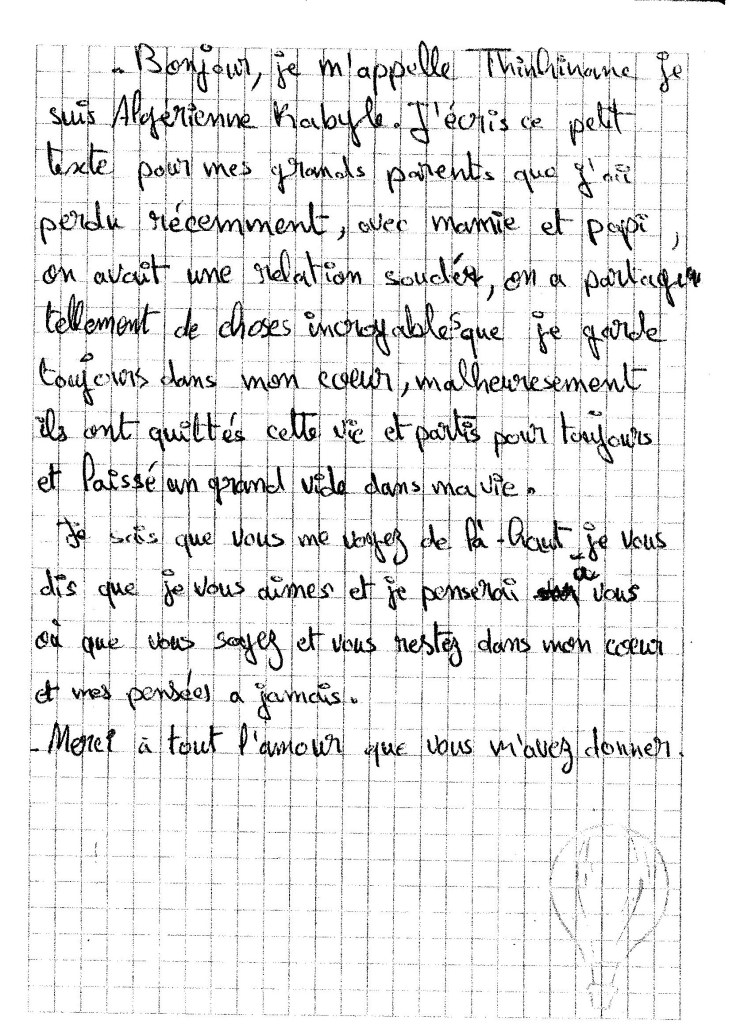 - Bonjour, je m'appelle Thinhinane je
suis Algérienne Kabyle. J'écris ce petit
texte pour mes grands parents que j'ai
perdu récemment, avec mamie et papi,
on avait une relation soudée, on a partager
tellement de choses incroyables que je garde
toujours dans mon coeur, malheuresement
ils ont quittés cette vie et partis pour toujours
et laissé un grand vide dans ma vie.
Je sais que vous me voyez de là-haut je vous
dis que je vous aimes et je penserai a vous
où que vous soyez et vous restez dans mon coeur
et mes pensées a jamais.
- Merci à tout l'amour que vous m'avez donner.